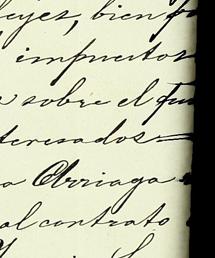 leyes, bien
impuestos
sobre el
teresados
Arriaga
al contrato